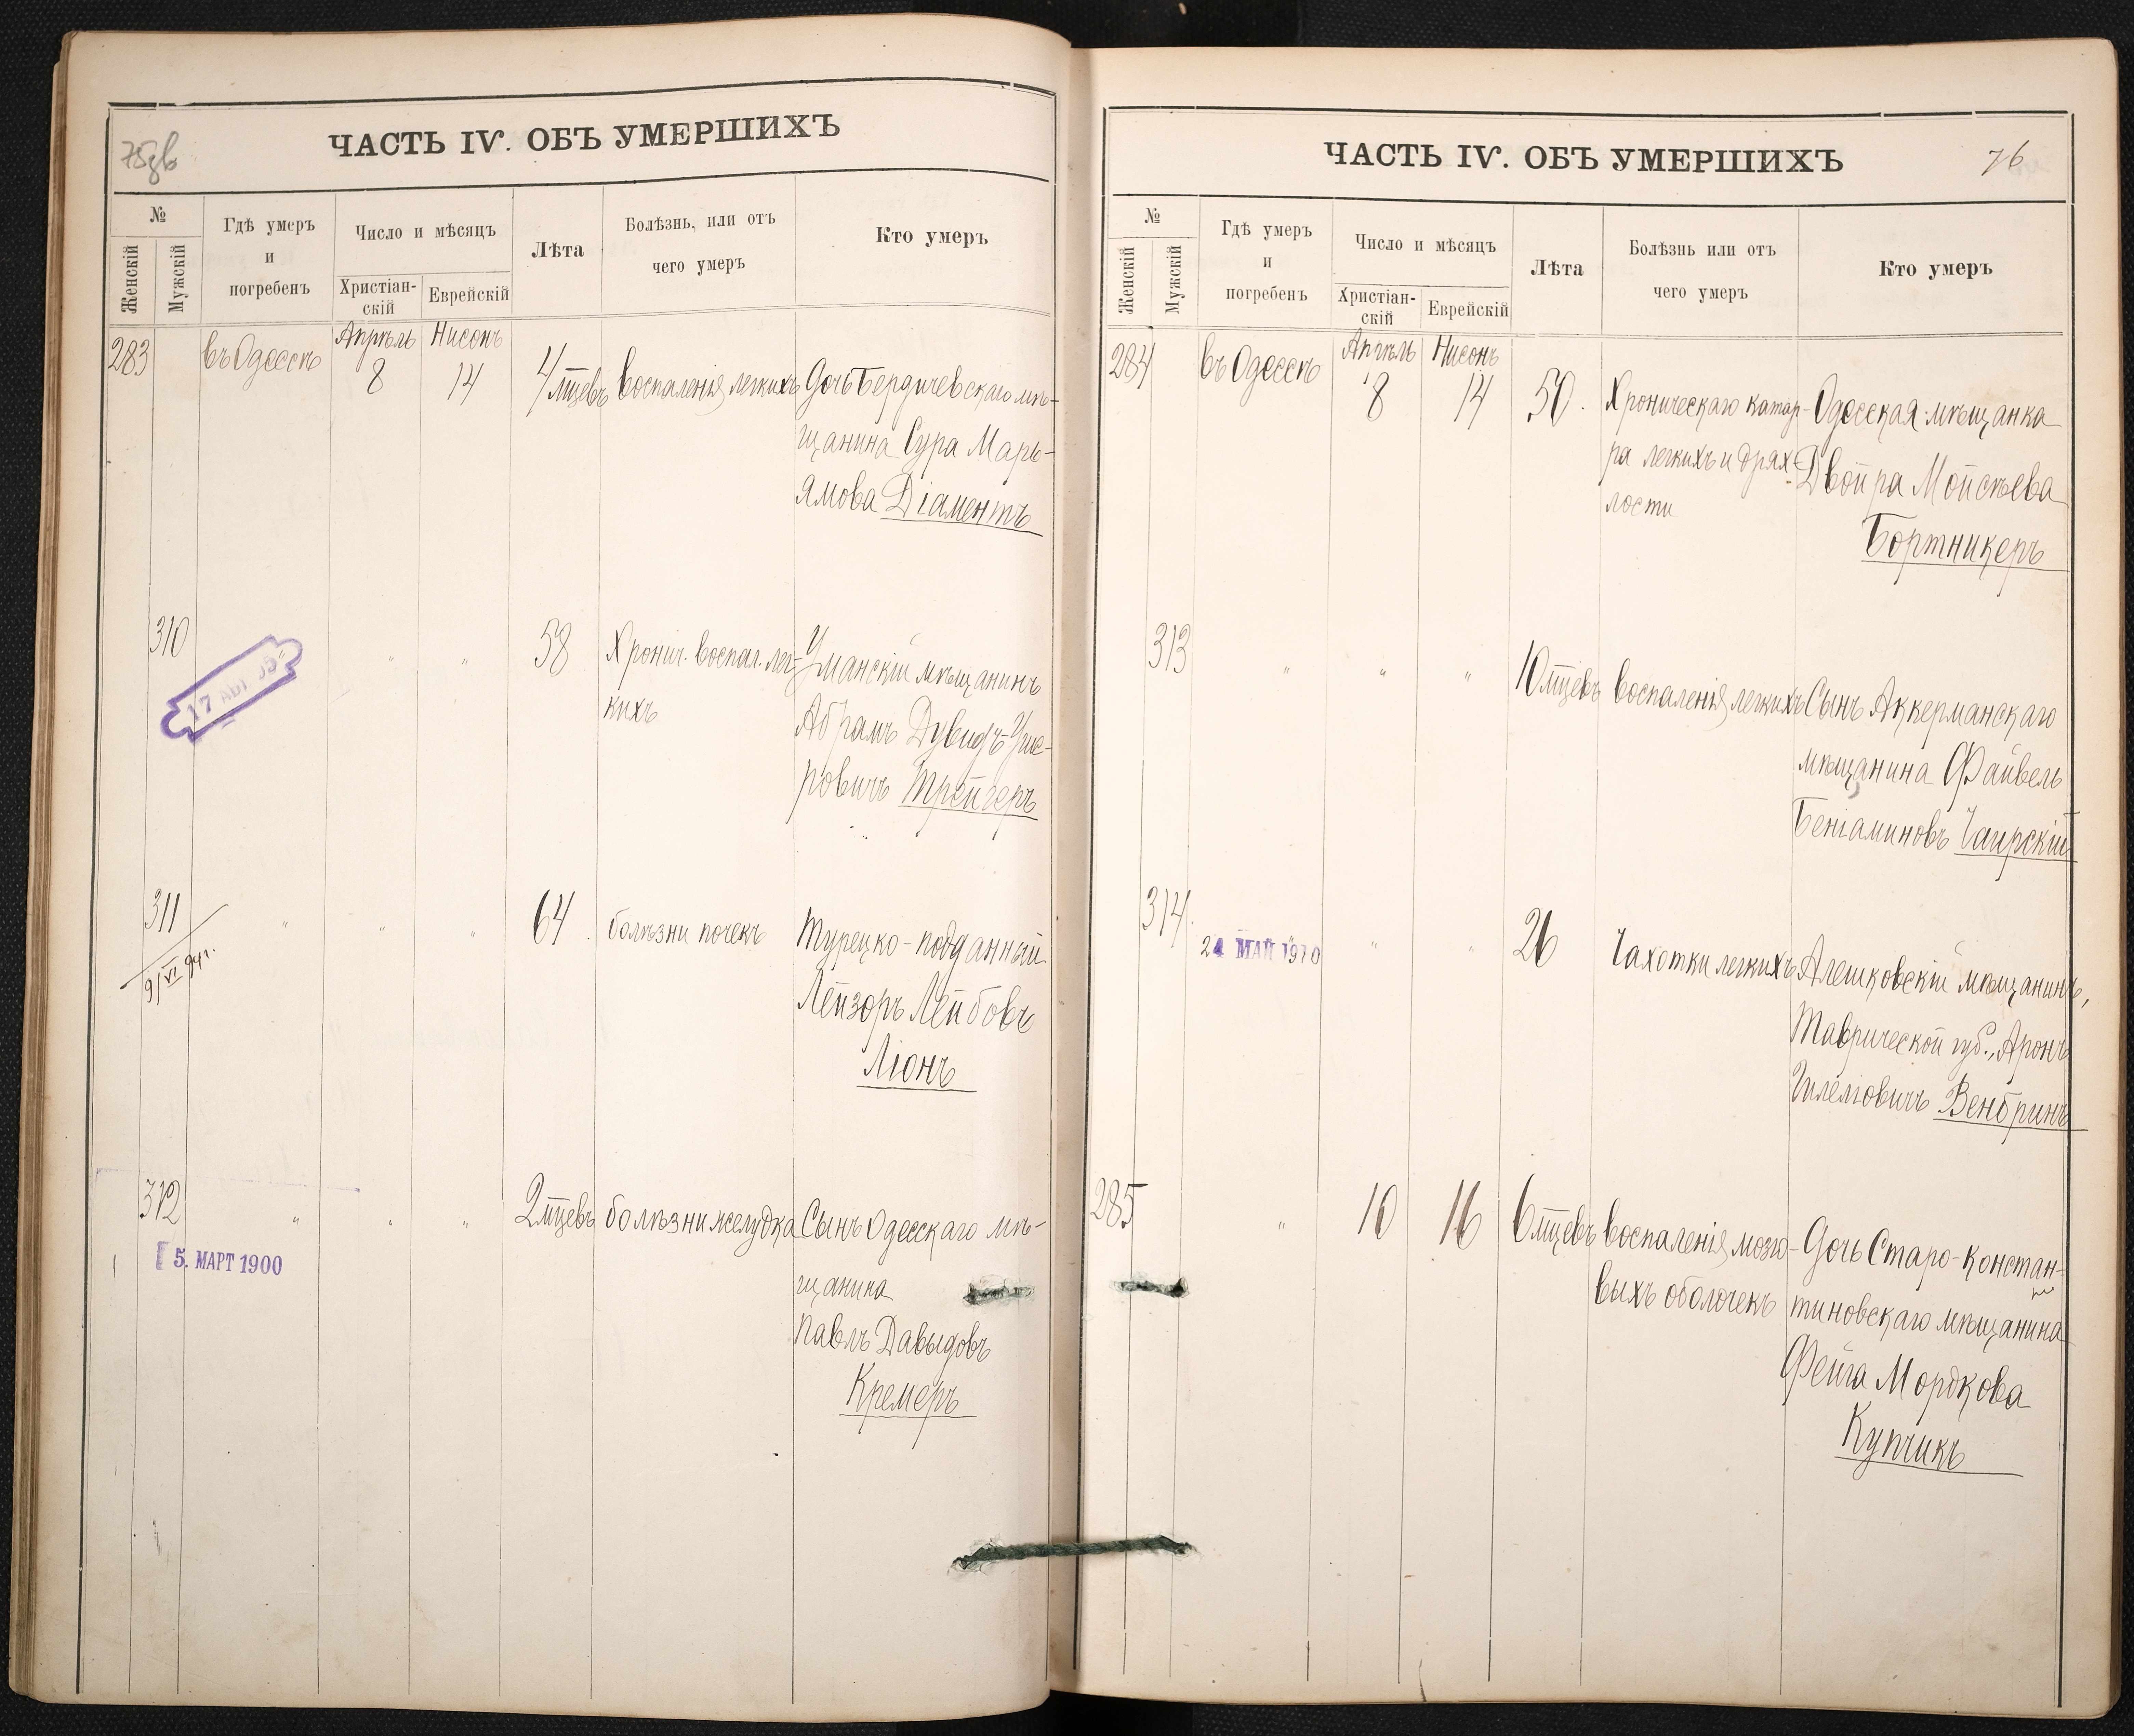 75зв
ЧАСТЬ IV. ОБЪ УМЕРШИХЪ
№
Женскій
Мужскій
Гдѣ умеръ
и
погребенъ
Число и мѣсяцъ
Христіан-
скій
Еврейскій
Лѣта
Болѣзнь, или отъ
чего умеръ
Кто умеръ
283 въ Одессѣ Апрѣль 8 Нисонъ 14 4 мцевъ воспаленія легкихъ Дочь Бердичевскаго мѣ-
щанина Сура Марь-
ямова Діаментъ
310 " " 58 Хронич. воспал. лег- Уманскій мѣщанинъ
кихъ Абрамъ Дувидъ-
ровичъ Трейгеръ
17 АВГ
311 " " " 64. болѣзни почекъ Турецко-подданный
9/VI 94 г. Лейзоръ Лейбовъ
Ліонъ
312 " " " 2 мцевъ болѣзни желудка Сынъ Одесскаго мѣ-
5. МАРТ 1900 щанина
Павлъ Давыдовъ
Кремеръ
76
ЧАСТЬ IV. ОБЪ УМЕРШИХЪ
№
Женскій
Мужскій
Гдѣ умеръ
и
погребенъ
Число и мѣсяцъ
Христіан-
скій
Еврейскій
Лѣта
Болѣзнь или отъ
чего умеръ
Кто умеръ
284 въ Одессѣ Апрѣль 8 Нисонъ 14 50. Хроническаго катар- Одесская мѣщанка
ра легкихъ и дрях- Двойра Мойсѣева
лости Бортникеръ
313 " " " 10 мцевъ воспаленія легкихъ Сынъ Аккерманскаго
мѣщанина Файвель
Беніаминовъ Чаирскій
314. " " " 26 Чахотки легкихъ Алешковскій мѣщанинъ,
24 МАЙ 1910 Таврической губ., Аронъ
Шлемовичъ Венбринъ
285 " 10 16 6 мцевъ воспаленія мозго- Дочь Старо-Констан-
выхъ оболочекъ тиновскаго мѣщанина
Фейга Мордкова
Купчикъ